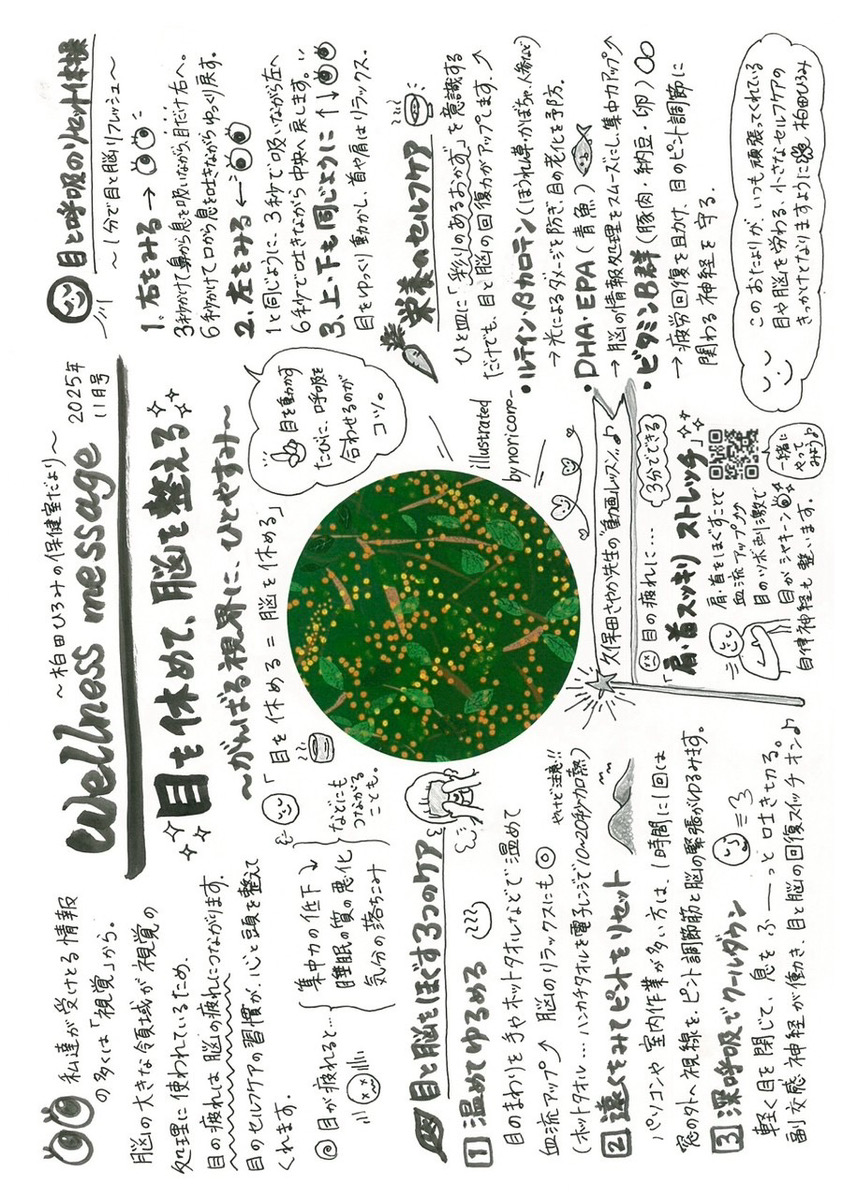 ～柏田ひろみの保健室だより～
Wellness message
2025年
11月号
目を休めて、脳を整える
～がんばる視界に、ひとやすみ～
「目を休める = 脳を休める」
私達が受けとる情報
の多くは「視覚」から。
脳の大きな領域が視覚の
処理に使われているため、
目の疲れは脳の疲れにつながります。
目のセルフケアの習慣が、心と頭を整えて
くれます。
◎目が疲れると…
集中力の低下↓
睡眠の質の悪化
気分の落ちこみ
などにも
つながる
ことも。
目と脳をほぐす3つのケア
1 温めてゆるめる
目のまわりを手やホットタオルなどで温めて
血流アップ↗ 脳のリラックスにも◎
やけど注意!!
(ホットタオル… ハンカチタオルを電子レンジで10~20秒加熱)
2 遠くをみてピントをリセット
パソコンや室内作業が多い方は、1時間に1回は
窓の外へ視線を。ピント調節筋と脳の緊張がゆるみます。
3 深呼吸でクールダウン
軽く目を閉じて、息をふ——っと吐き切る。
副交感神経が働き、目と脳の回復スイッチオン♪
目と呼吸のリセット体操
～1分で目と脳リフレッシュ～
1. 右をみる →
3秒かけて鼻から息を吸いながら、目だけ右へ。
6秒かけて口から息を吐きながらゆっくり戻す。
2. 左をみる ←
1と同じように、3秒で吸いながら左へ
6秒で吐きながら中央へ戻します。
3. 上・下も同じように ↑↓
目をゆっくり動かし、首や肩はリラックス。
目を動かす
たびに、呼吸を
合わせるのが
コツ。
illustrated
by noricoro-
栄養のセルフケア
ひと皿に「彩りのあるおかず」を意識する
だけでも、目と脳の回復力がアップします。↗
・ルテイン・βカロテン(ほうれん草・かぼちゃ・人参など)
→ 光によるダメージを防ぎ、目の老化を予防。
・DHA・EPA(青魚)
→ 脳の情報処理をスムーズにし、集中力アップ↗
・ビタミンB群(豚肉・納豆・卵)
→ 疲労回復を助け、目のピント調節に
関わる神経を守る。
久保田さやか先生の"動画レッスン"♪
目の疲れに…
3分でできる
「肩・首スッキリ ストレッチ」
肩・首をほぐすことで
血流アップ↗
目のツボ刺激で
目がシャキーン
自律神経も整います。
一緒に
やって
みよう♪
このおたよりが、いつも頑張ってくれている
目や脳を労わる、小さなセルフケアの
きっかけとなりますように 柏田ひろみ